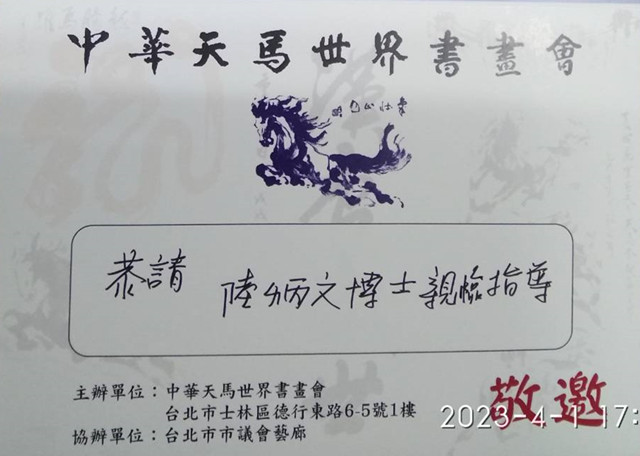 中華天馬世界書畫會
恭請 陸炳文博士親臨指導
主辦單位：中華天馬世界書畫會
台北市士林區德行東路6-5號1樓
協辦單位：台北市市議會藝廊
敬邀
2023-4-1 17: